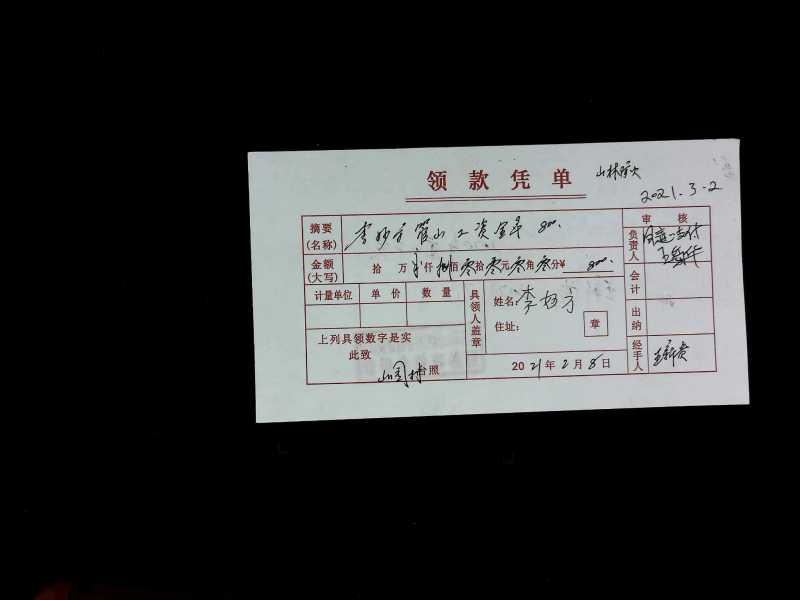 领款凭单
山林防火
2021.3-2
摘要
(名称)
管山工资 800.
审核
负责人
同意支付
金额
(大写)
拾万仟捌佰零拾零元零角零分¥ 800.
会计
计量单位 单价 数量
具领人盖章
姓名: 李
住址: 章
出纳
上列具领数字是实
此致
台照
2021年2月8日
经手人